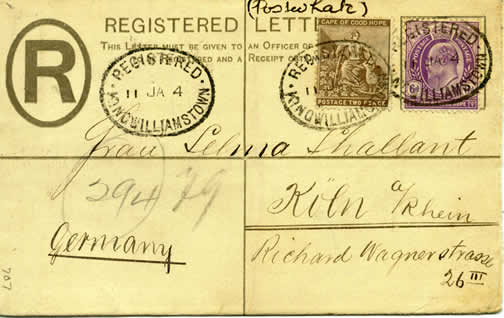 (Poste Rate)
REGISTERED LETTER
THIS LETTER MUST BE GIVEN TO AN OFFICER OF
REGISTERED AND A RECEIPT
R
REGISTERED
11 JA 4
KINGWILLIAMSTOWN
CAPE OF GOOD HOPE
POSTAGE TWO PENCE
REGISTERED
11
KINGWILLIAMSTOWN
REGISTERED
JA 4
KINGWILLIAMSTOWN
6d
Frau Selma Thallant
294 79
Köln a/Rhein
Germany
Richard Wagnerstrasse
26 III
707